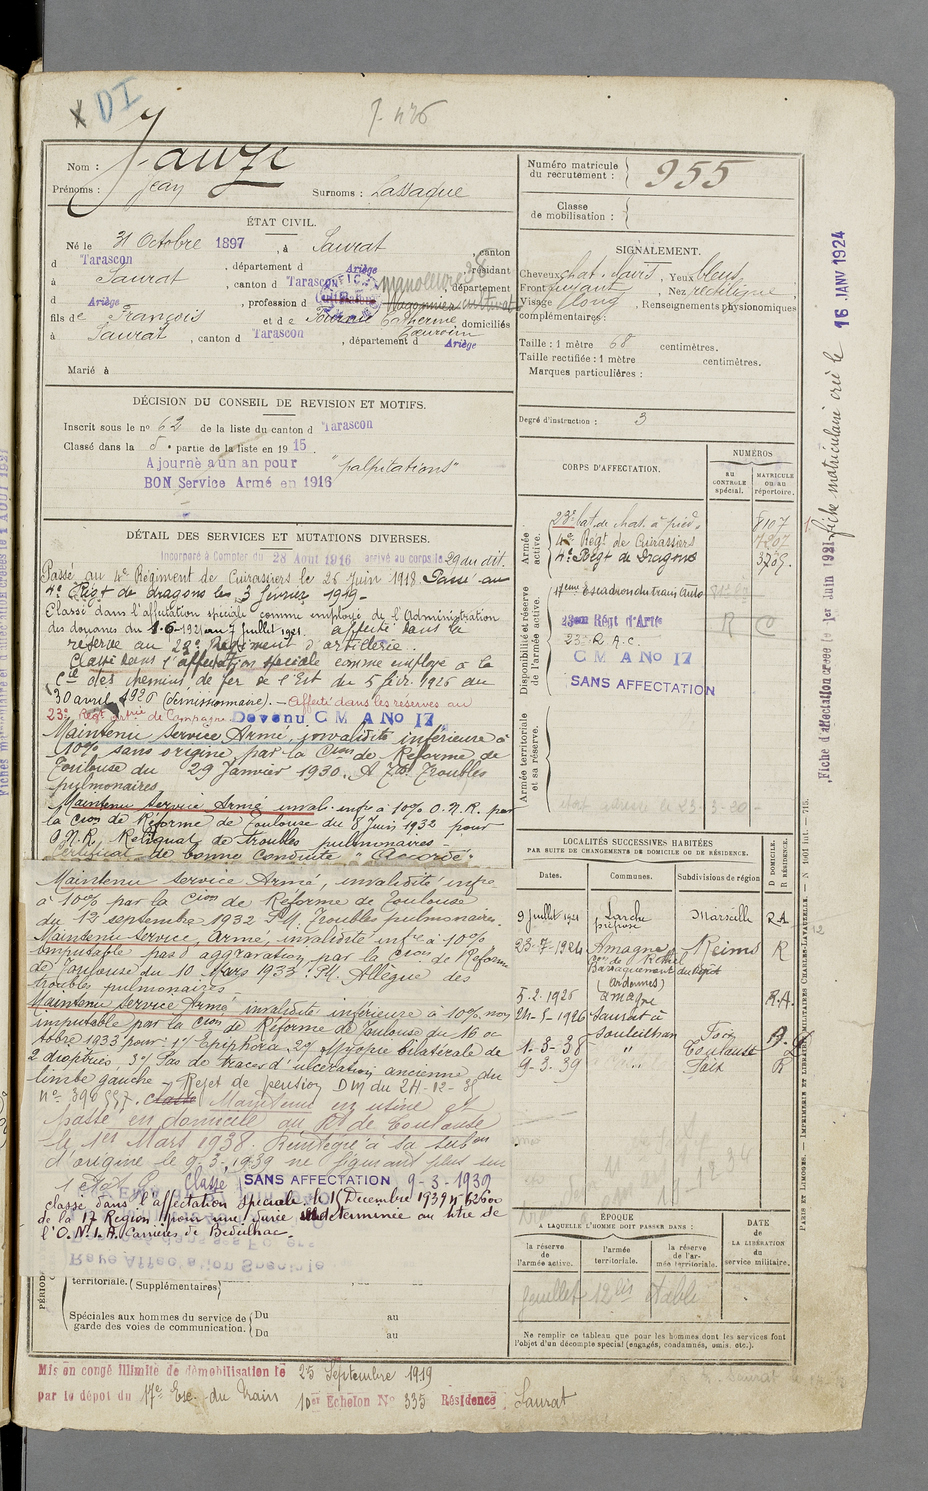 X DI
J. 426
Nom : Jauze
Prénoms : Jean Surnoms : Lassague
Numéro matricule du recrutement : 955
Classe de mobilisation :
ÉTAT CIVIL.
Né le 31 Octobre 1897, à Saurat, canton
d Tarascon, département d Ariège, résidant
à Saurat, canton d Tarascon, département
d Ariège, profession d manoeuvre 38
fils de François et de Catherine, domiciliés
à Saurat, canton d Tarascon, département d Ariège
Marié à
SIGNALEMENT.
Cheveux chat. clairs, Yeux bleus
Front fuyant, Nez rectiligne,
Visage long, Renseignements physionomiques
complémentaires :
Taille : 1 mètre 68 centimètres.
Taille rectifiée : 1 mètre centimètres.
Marques particulières :
Degré d'instruction : 3
DÉCISION DU CONSEIL DE REVISION ET MOTIFS.
Inscrit sous le no 62 de la liste du canton d Tarascon
Classé dans la 5e partie de la liste en 1915.
Ajourné à un an pour "palpitations"
BON Service Armé en 1916
DÉTAIL DES SERVICES ET MUTATIONS DIVERSES.
Incorporé à Compter du 28 Aout 1916 arrivé au corps le 29 du dit.
Passé au 4e Régiment de Cuirassiers le 25 Juin 1918. Passé au
4e Régt de dragons le 3 février 1919-
Classé dans l'affectation spéciale comme employé de l'Administration
des douanes du 1-6-1921 au 7 Juillet 1921. affecté dans la
réserve au 23e Régiment d'artillerie.
Classé dans l'affectation spéciale comme employé à la
Cie des chemins de fer de l'Est du 5 févr. 1926 au
30 avril 1926 (démissionnaire). - Affecté dans les réserves au
23e Régt artrie de Campagne Devenu C M A No 17
Maintenu Service Armé, invalidité inférieure à
10% sans origine, par la Cion de Réforme de
Toulouse du 29 Janvier 1930. Troubles
pulmonaires
Maintenu Service Armé inval. infre à 10% O.N.R. par
la Cion de Réforme de Toulouse du 8 Juin 1932 pour
O.N.R. Reliquat de troubles pulmonaires -
Certificat de bonne Conduite "Accordé"
Maintenu Service Armé, invalidité infre
à 10% par la Cion de Réforme de Toulouse
du 12 septembre 1932 P.M. Troubles pulmonaires.
Maintenu Service Armé, invalidité infre à 10%
imputable pas d'aggravation par la Cion de Réforme
de Toulouse du 10 Mars 1933. P.M. Allègue des
troubles pulmonaires
Maintenu Service Armé invalidité inférieure à 10% non
imputable par la Cion de Réforme de Toulouse du 16 oc
tobre 1933 pour : 1º/ Epiphora, 2º/ Myopie bilatérale de
2 dioptries, 3º/ Pas de traces d'ulcération ancienne du
limbe gauche - Rejet de pension DM du 24-12-35
no 396557. Maintenu en usine et
passé en domicile au Rt de Toulouse
le 1er Mars 1938. Réintégré à sa subon
d'origine le 9.3.1939 ne figurant plus sur
Classé SANS AFFECTATION 9-3-1939
classé dans l'affectation spéciale le Decembre 1939 no 62600
de la 17 Région pour une durée indéterminée au titre de
l'O.N.I.A. Carrières de Bedeilhac.
CORPS D'AFFECTATION.
NUMÉROS
AU CONTROLE spécial.
MATRICULE ou au répertoire.
Armée active.
23e bat. de chas. à pied. 8107
4e Régt de Cuirassiers 7207
4e Régt de Dragons 3265.
Disponibilité et réserve de l'armée active.
17eme Escadron du train Auto
23eme Régt d'Artie R CO
23e R.A.C.
C M A No 17
SANS AFFECTATION
Armée territoriale et sa réserve.
LOCALITÉS SUCCESSIVES HABITÉES
PAR SUITE DE CHANGEMENTS DE DOMICILE OU DE RÉSIDENCE.
D DOMICILE. R RÉSIDENCE.
Dates. Communes. Subdivisions de région
9 Juillet 1921 Larche Marseille R.A
préposé
23-7-1924 Amagne Reims R
Baraquement du dépôt
(Ardennes)
5.2.1926 Amagne R.A.
24-5-1926 Saurat à Foix
Souleilhan
1-3-38 " Toulouse
9-3-39 Foix R
ÉPOQUE
A LAQUELLE L'HOMME DOIT PASSER DANS :
la réserve de l'armée active.
l'armée territoriale.
la réserve de l'armée territoriale.
DATE de LA LIBÉRATION du service militaire.
PÉRIODE
territoriale. (Supplémentaires)
Spéciales aux hommes du service de garde des voies de communication.
Du au
Du au
Ne remplir ce tableau que pour les hommes dont les services font
l'objet d'un décompte spécial (engagés, condamnés, omis, etc.).
Mis en congé illimité de démobilisation le 25 Septembre 1919
par le dépôt du 17e Esc. du Train 10er Echelon No 335 Résidence : Saurat
fiche matriculaire crée le 16 JANV 1924
Fiche d'affectation créée le 1er Juin 1921
PARIS ET LIMOGES. — IMPRIMERIE ET LIBRAIRIE MILITAIRES CHARLES-LAVAUZELLE. — N 1901 int. — 715.